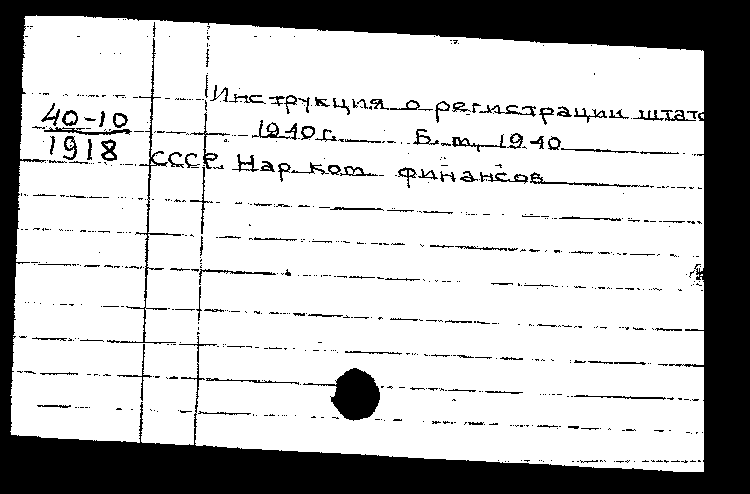 Инструкция о регистрации штато
40-10
1918
1940 г. Б. м., 1940
СССР. Нар. ком. финансов